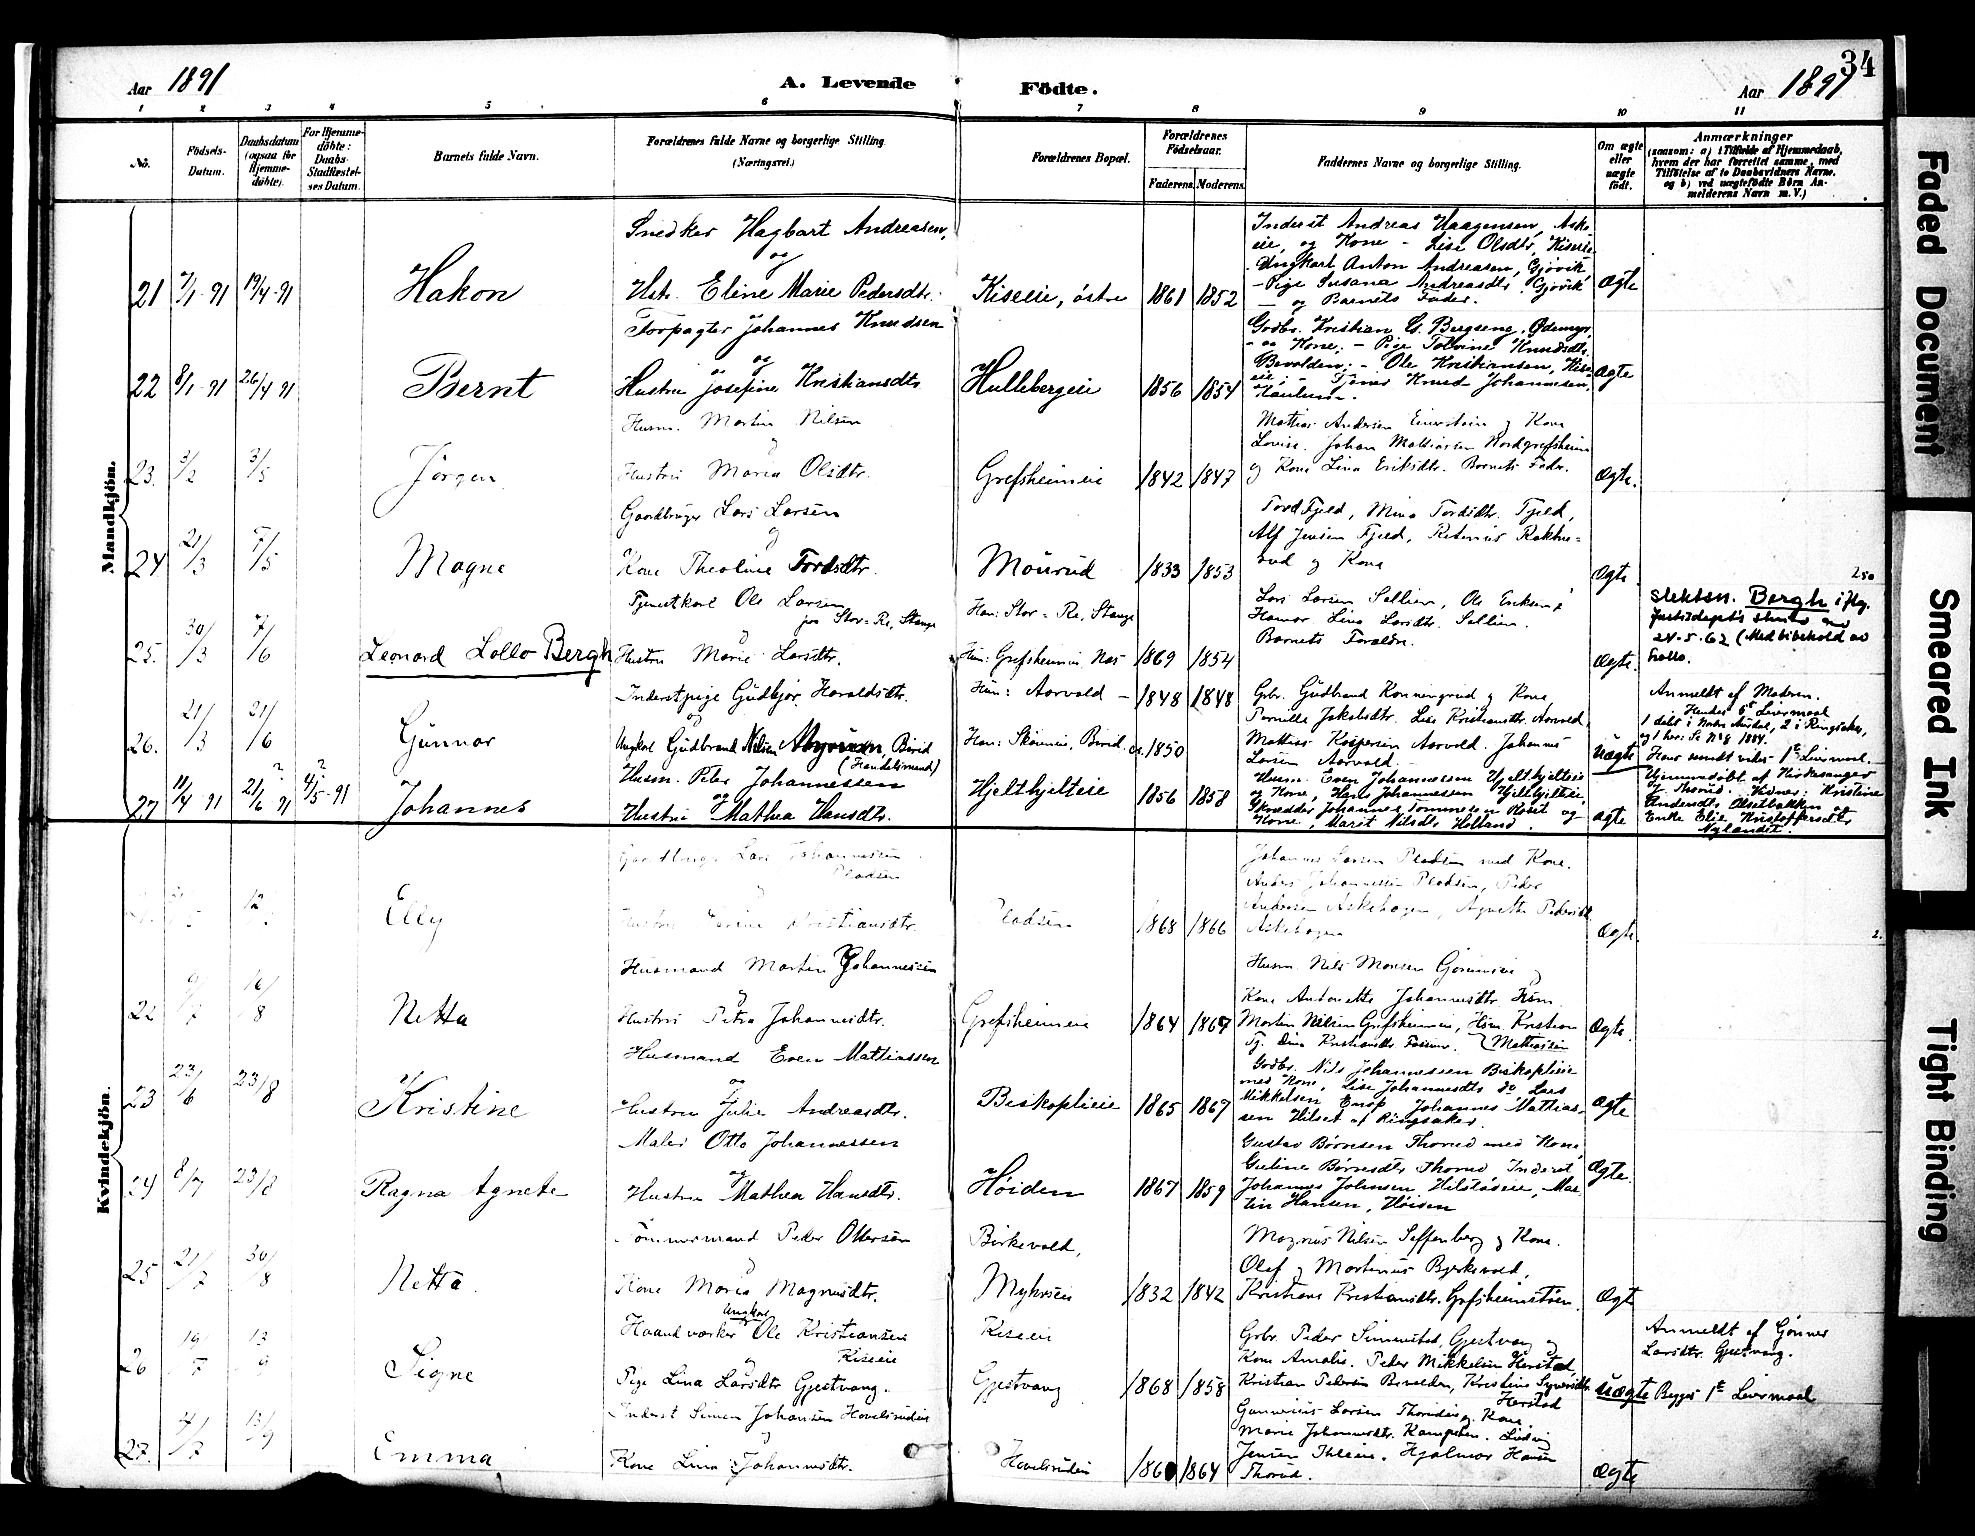 34
Aar 1891
A. Levende Födte.
Aar 1891
1 2 3 4 5 6 7 8 9 10 11
No.
Födsels-Datum.
Daabsdatum (ogsaa for Hjemme-döbte).
For Hjemme-döbte: Daabs-Stadfæstel-ses Datum.
Barnets fulde Navn.
Forældrenes fulde Navne og borgerlige Stilling (Næringsvei.)
Forældrenes Bopæl.
Forældrenes Födselsaar.
Faderens. Moderens.
Faddernes Navne og borgerlige Stilling.
Om ægte eller uægte födt.
Anmærkninger
(saasom: a) i Tilfælde af Hjemmedaab, hvem der har forrettet samme, med Tilföielse af to Daabsvidners Navne, og b) ved uægtefödte Börn An-melderens Navn m. V.)
Mandkjön.
21 7/1-91 19/4-91 Hakon
Snedker Hagbart Andreasen,
og
Hstr. Eline Marie Pedersdtr.
Kiseeie, östre 1861 1852
Inderst Andreas Haagensen, Aske-
eie, og Kone - Lise Olsdtr, Kiseeie
Ungkarl Anton Andreasen, Gjövik,
- Pige Susana Andreasdtr Gjövik
- og Barnets Fader.
Ægte
22 8/1-91 26/4-91 Bernt
Forpagter Johannes Knudsen
og
Hustru Josefine Kristiansdtr
Hullebergeie 1856 1854
Godbr. Kristian G. Bergseng, Ödemyr,
- og Kone, - Pige Tolvine Knudsdtr
Bevolden; - Ole Kristiansen, Kise-
eie; - Tjener Knud Johannesen,
Ægte
23. 3/2 3/5 Jörgen
Husm. Martin Nilsen
og
Hustru Maria Olsdtr.
Grefsheimeie 1842 1847
Mattias Andersen Einerstein og Kone
Lovise. Johan Mattiasen Nordgrefsheim
og Kone Lina Eriksdtr. Barnets Fader.
Ægte.
24 21/3 7/5 Magne
Gaardbruger Lars Larsen
og
Kone Theoline Tordsdtr.
Mourud 1833 1853
Tord Fjeld, Mina Tordsdtr. Fjeld,
Alf Jensen Fjeld, Retmus Rokhu-
rud og Kone
Ægte.
25. 30/3 7/6 Leonard Lollo Bergh
Tjenestkarl Ole Larsen
fra Stor-Re, Stange
Hustru Marie Larsdtr.
Han: Stor-Re, Stange
Hun: Grefsheimeie Nes 1869 1854
Lars Larsen Sellien, Ole Eriksen,
Hamar, Lina Larsdtr. Sellien.
Barnets Foraldre.
Ægte.
250
Slektsn. Bergh iflg.
Justisdeptets skriv av
24-5-62 (Med bibehold av
Lollo.
26. 21/3 21/6 Gunnar
Inderstpige Gudbjor Haraldsdtr.
og
Ungkarl Gudbrand Nilsen Myrum, Birid
(Handelsmand)
Hun: Aarvold - 1848 1848
Han: Skönneie, Birid. 1850
Gbr. Gudbrand Konningrud og Kone
Pernille Jakobsdtr. Lise Kristiansdtr. Aarvold.
Mattias Kaspersen Aarvold. Johannes
Larsen Aarvold.
Uægte
Anmeldt af Moderen.
Hendes 5te Leiermaal
1 döbt i Nordre Aurdal, 2 i Ringsaker,
og 1 her. Se No 8 1884.
Hans 1te Leiermaal.
27 11/4-91 21/6-91 4/5-91 Johannes
Husm. Peter Johannessen
og
Hustru Mathea Hansdtr.
Hjelthjelteie 1856 1858
Husm. Even Johannessen Hjelthjelteie
og Kone, Hans Johannessen Hjelthjelteie,
Skredder Johannes Tommesen Röset og
Kone, Marit Nilsdtr Helland.
Ægte
Hjemmedöbt af Kirkesanger
og Thorud. Vidner: Kristine
Andersdtr Alsetbakken
Enke Elie Kristoffersdtr
Nylandet.
Kvindekjön.
Elly
Gaardbruger Lars Johannessen
Pladsen
og
Hustru Kristiansdtr.
Pladsen 1868 1866
Johannes Larsen Pladsen med Kone.
Anders Johannessen Pladsen, Peder
Andersen Askehagen, Agnethe Pedersdtr
Askehagen
Ægte.
22 9/7 16/8 Netta
Husmand Martin Johannessen
og
Hustru Petra Johannesdtr.
Grefsheimeie 1864 1867
Husm. Nils Monsen Gommeie og
Kone Antonette Johannesdtr. Husm.
Martin Nilsen Grefsheimeie, Husm. Kristian
Mattiassen
Tj. Dina Kristiansdtr.
Ægte.
23 23/6 23/8 Kristine
Husmand Even Mattiassen
og
Hustru Julie Andreasdtr.
Biskoplieie 1865 1867
Godbr. Nils Johannessen Biskoplieie
med Kone, Lise Johannesdtr do Lars
Mikkelsen Enöp Johannes Mattias-
sen Hilset af Ringsaker.
Ægte
24 8/7 23/8 Ragna Agnete
Maler Otto Johannessen
og
Hustru Mathea Hansdtr.
Höiden 1867 1859
Gustav Börresen Thorud med Kone,
Guline Börresdtr Thorud Inderst
Johannes Johnsen Hilstadeie, Mar-
tin Hansen, Höisen
Ægte.
25 21/7 30/8 Netta
Tömmermand Peder Ottersen
og
Kone Maria Magnusdtr.
Birkevold,
Myhreie 1832 1842
Magnus Nilsen Seffenberg og Kone.
Olaf og Martinius Bjerkevold,
Kristiane Kristiansdtr. Grefsheimstöen.
Ægte
26 19/5 13/9 Signe
Ungkarl
Haandværker Ole Kristiansen
og Kiseeie
Pige Lina Larsdtr Gjestvang.
Kiseeie
Gjestvang 1868 1858
Grbr. Peder Simenstad, Gjestvang og
Kone Amalie. Peder Mikkelsen Herstad,
Kristian Pedersen Bevolden, Kristine Syversdtr.
Herstad
Uægte
Anmeldt af Gönner
Larsdtr. Gjestvang.
Begges 1te Leiermaal
27. 4/7 13/9 Emma
Inderst Simen Johansen Hovelsrudeie
og
Kone Lina Johannesdtr.
Hovelsrudeie 1860 1864
Gunnerius Larsen Thorudeie og Kone.
Marie Johannesdtr. Kampesen. Ludvig
Jensen Ihleeie. Hjalmar Hansen
Thorud.
Ægte
Faded Document
Smeared Ink
Tight Binding